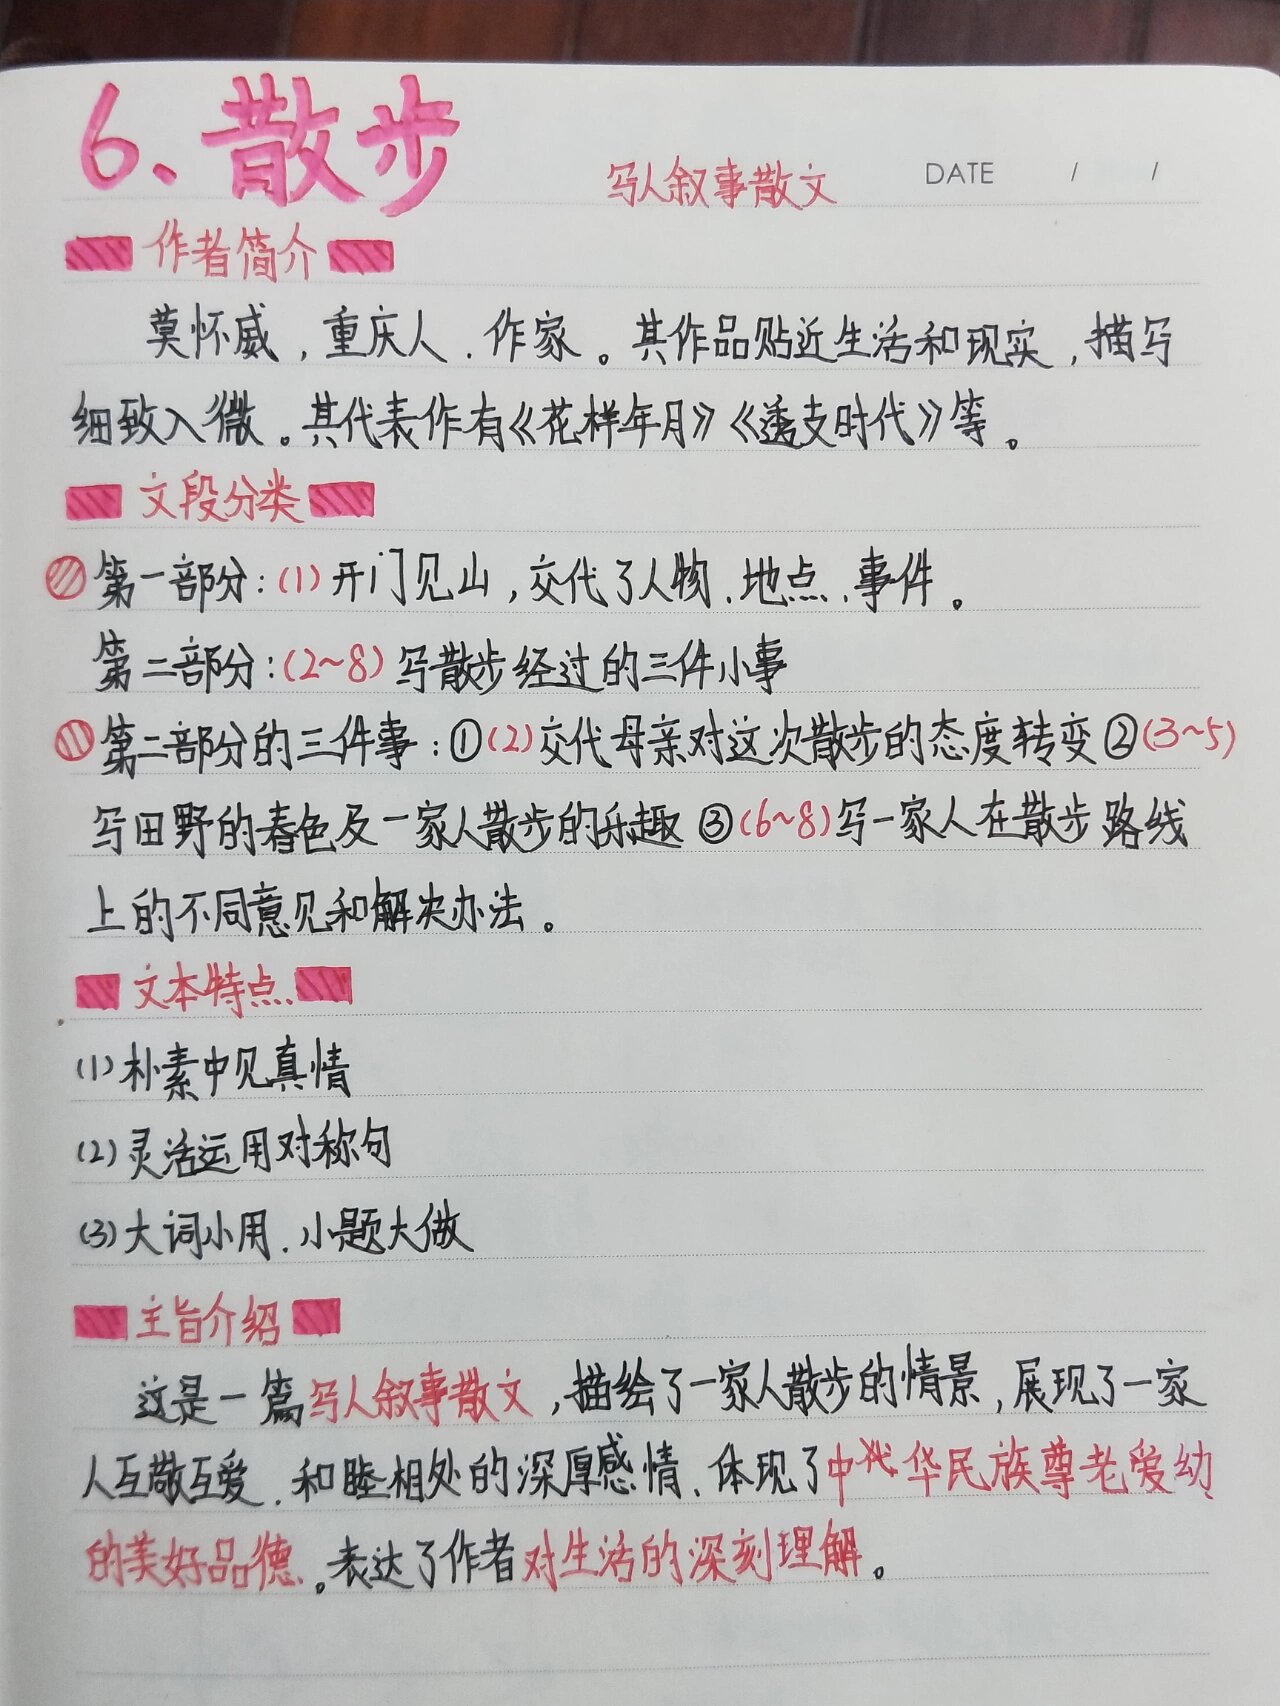 6、散步
写人叙事散文 DATE / /
作者简介
莫怀威，重庆人、作家。其作品贴近生活和现实，描写
细致入微。其代表作有《花样年月》《透支时代》等。
文段分类
第一部分：(1)开门见山，交代了人物、地点、事件。
第二部分：(2~8)写散步经过的三件小事
第二部分的三件事：①(2)交代母亲对这次散步的态度转变②(3~5)
写田野的春色及一家人散步的乐趣③(6~8)写一家人在散步路线
上的不同意见和解决办法。
文本特点
(1)朴素中见真情
(2)灵活运用对称句
(3)大词小用、小题大做
主旨介绍
这是一篇写人叙事散文，描绘了一家人散步的情景，展现了一家
人互敬互爱、和睦相处的深厚感情、体现了中华民族尊老爱幼
的美好品德。表达了作者对生活的深刻理解。